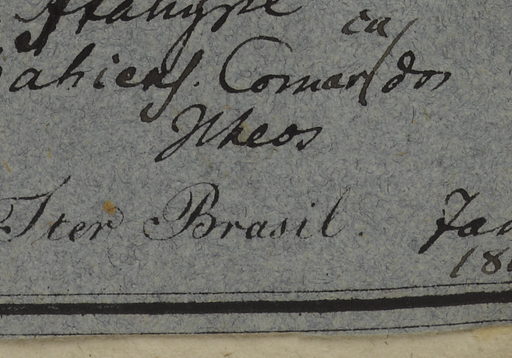 Itahype
ahiens. Comarca dos
Ilheos
Iter Brasil. Jan
18